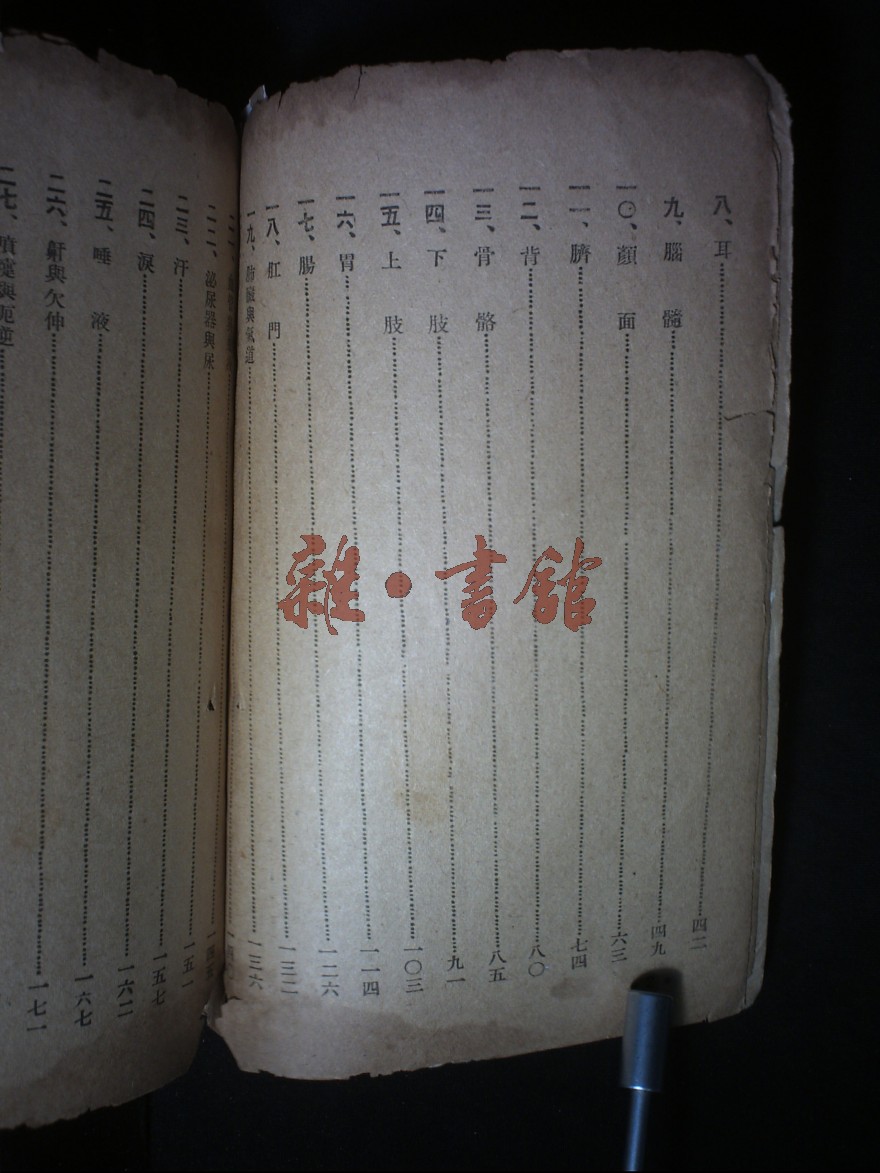 八、耳……四二
九、腦髓……四九
一〇、顏面……六三
一一、臍……七四
一二、背……八〇
一三、骨骼……八五
一四、下肢……九一
一五、上肢……一〇三
一六、胃……一一四
一七、腸……一二六
一八、肛門……一三二
一九、肺臟與氣道……一三六
二二、泌尿器與尿……一四五
二三、汗……一五一
二四、淚……一五七
二五、唾液……一六二
二六、鼾與欠伸……一六七
二七、噴嚏與呃逆……一七一
雜·書館